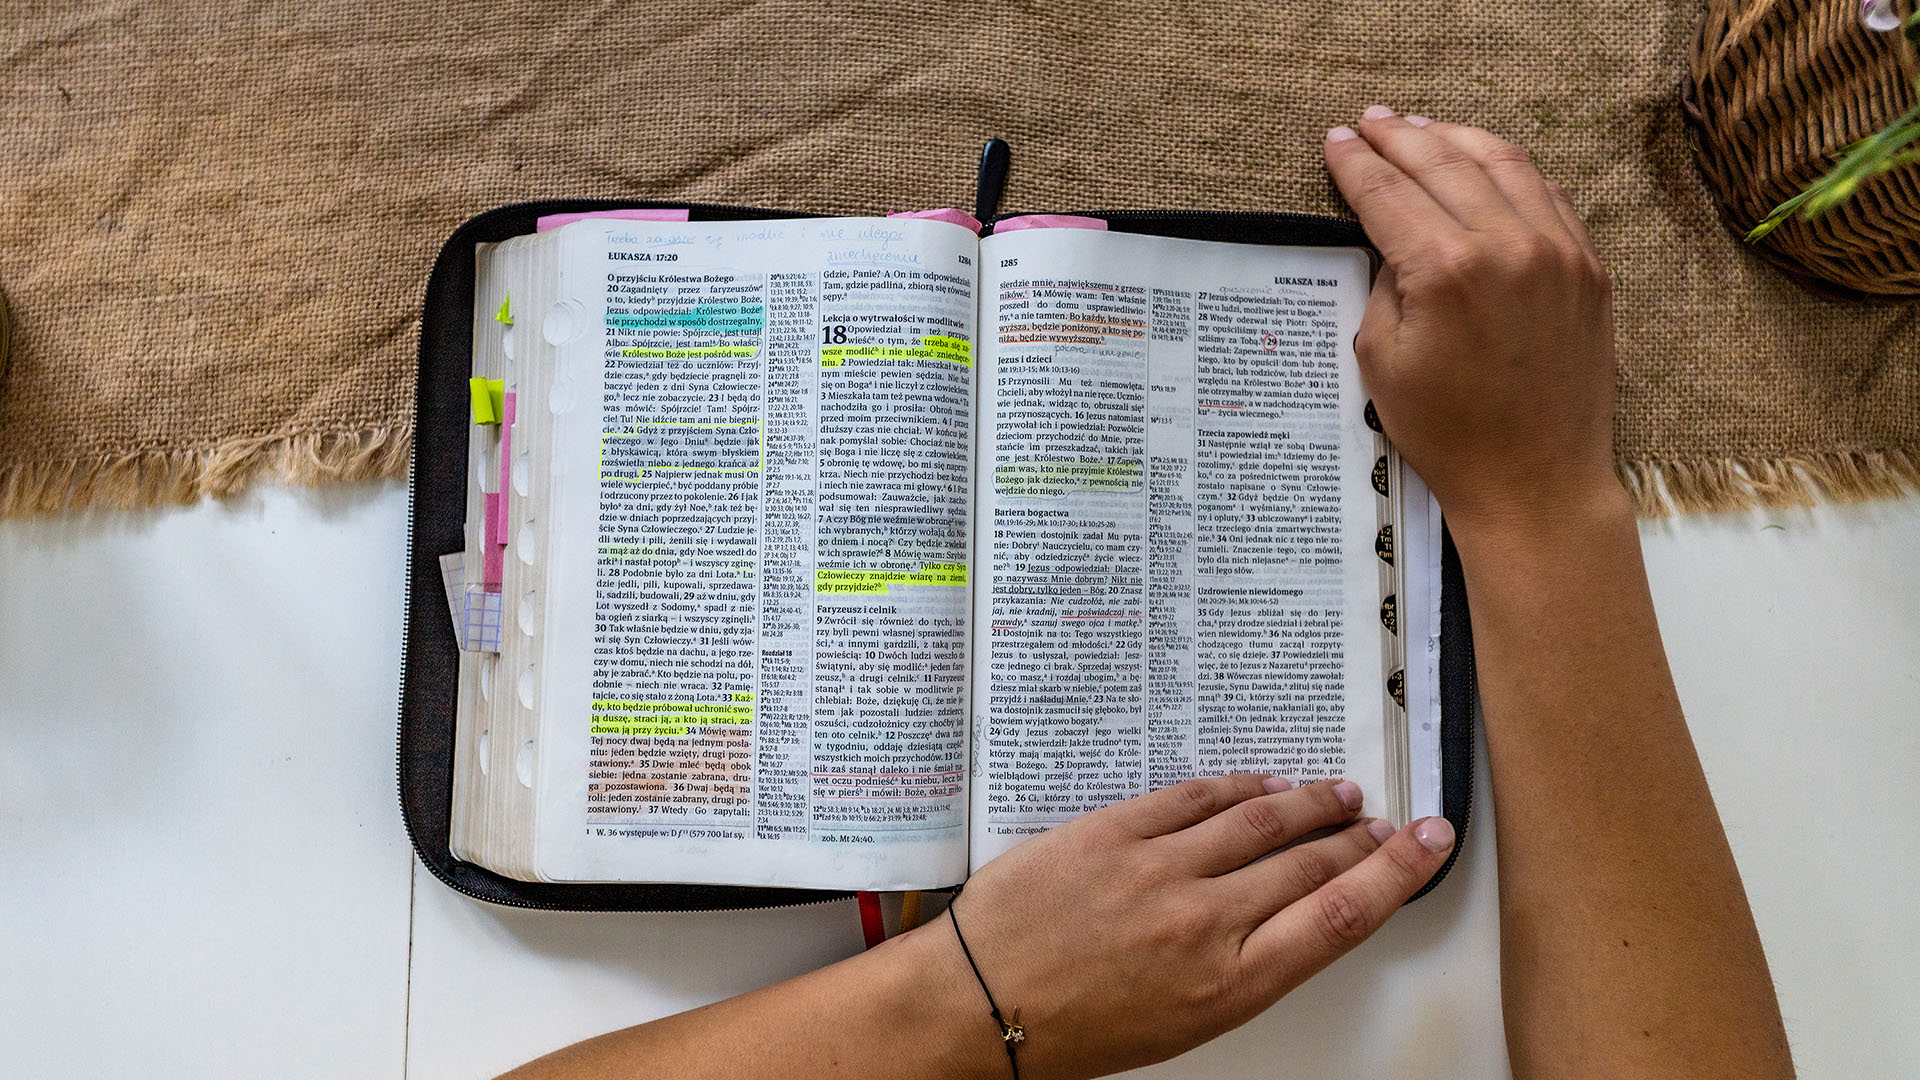 Trzeba zawsze się modlić i nie ulegać
zniechęceniu
ŁUKASZA 17:20
1284
O przyjściu Królestwa Bożego
20 Zagadnięty przez faryzeuszów
o to, kiedy przyjdzie Królestwo Boże,
Jezus odpowiedział: Królestwo Boże
nie przychodzi w sposób dostrzegalny.
21 Nikt nie powie: Spójrzcie, jest tutaj!
Albo: Spójrzcie, jest tam! Bo właści-
wie Królestwo Boże jest pośród was.
22 Powiedział też do uczniów: Przyj-
dzie czas, gdy będziecie pragnęli zo-
baczyć jeden z dni Syna Człowiecze-
go, lecz nie zobaczycie. 23 I będą do
was mówić: Spójrzcie! Tam! Spójrz-
cie! Tu! Nie idźcie tam ani nie biegnij-
cie. 24 Gdyż z przyjściem Syna Czło-
wieczego w Jego Dniu będzie jak
z błyskawicą, która swym błyskiem
rozświetla niebo z jednego krańca aż
po drugi. 25 Najpierw jednak musi On
wiele wycierpieć, być poddany próbie
i odrzucony przez to pokolenie. 26 I jak
było za dni, gdy żył Noe, tak też bę-
dzie w dniach poprzedzających przyj-
ście Syna Człowieczego. 27 Ludzie je-
dli wtedy i pili, żenili się i wydawali
za mąż aż do dnia, gdy Noe wszedł do
arki i nastał potop – i wszyscy zginę-
li. 28 Podobnie było za dni Lota. Lu-
dzie jedli, pili, kupowali, sprzedawa-
li, sadzili, budowali, 29 aż w dniu, gdy
Lot wyszedł z Sodomy, spadł z nie-
ba ogień z siarką – i wszyscy zginęli.
30 Tak właśnie będzie w dniu, gdy zja-
wi się Syn Człowieczy. 31 Jeśli wów-
czas ktoś będzie na dachu, a jego rze-
czy w domu, niech nie schodzi na dół,
aby je zabrać. Kto będzie na polu, po-
dobnie – niech nie wraca. 32 Pamię-
tajcie, co się stało z żoną Lota. 33 Każ-
dy, kto będzie próbował uchronić swo-
ją duszę, straci ją, a kto ją straci, za-
chowa ją przy życiu. 34 Mówię wam:
Tej nocy dwaj będą na jednym posła-
niu: jeden będzie wzięty, drugi pozo-
stawiony. 35 Dwie mleć będą obok
siebie: jedna zostanie zabrana, dru-
ga pozostawiona. 36 Dwaj będą na
roli: jeden zostanie zabrany, drugi po-
zostawiony. 37 Wtedy Go zapytali:
1 W. 36 występuje w: D f (579 700 lat sy,
Rozdział 18
Gdzie, Panie? A On im odpowiedział:
Tam, gdzie padlina, zbiorą się również
sępy.
Lekcja o wytrwałości w modlitwie
18 Opowiedział im też przypo-
wieść o tym, że trzeba się za-
wsze modlić i nie ulegać zniechęce-
niu. 2 Powiedział tak: Mieszkał w jed-
nym mieście pewien sędzia. Nie bał
się on Boga i nie liczył z człowiekiem.
3 Mieszkała tam też pewna wdowa. Ta
nachodziła go i prosiła: Obroń mnie
przed moim przeciwnikiem. 4 I przez
dłuższy czas nie chciał. W końcu jed-
nak pomyślał sobie: Chociaż nie boję
się Boga i nie liczę się z człowiekiem,
5 obronię tę wdowę, bo mi się naprzy-
krza. Niech nie przychodzi bez końca
i niech nie zawraca mi głowy. 6 I Pan
podsumował: Zauważcie, jak zacho-
wał się ten niesprawiedliwy sędzia.
7 A czy Bóg nie weźmie w obronę swo-
ich wybranych, którzy wołają do Nie-
go dniem i nocą? Czy będzie zwlekał
w ich sprawie? 8 Mówię wam: Szybko
weźmie ich w obronę. Tylko czy Syn
Człowieczy znajdzie wiarę na ziemi,
gdy przyjdzie?
Faryzeusz i celnik
9 Zwrócił się również do tych, któ-
rzy byli pewni własnej sprawiedliwo-
ści, a innymi gardzili, z taką przy-
powieścią: 10 Dwóch ludzi weszło do
świątyni, aby się modlić: jeden fary-
zeusz, a drugi celnik. 11 Faryzeusz
stanął i tak sobie w modlitwie po-
chlebiał: Boże, dziękuję Ci, że nie je-
stem jak pozostali ludzie: zdziercy,
oszuści, cudzołożnicy czy choćby jak
ten oto celnik. 12 Poszczę dwa razy
w tygodniu, oddaję dziesiątą część
wszystkich moich przychodów. 13 Cel-
nik zaś stanął daleko i nie śmiał na-
wet oczu podnieść ku niebu, lecz bił
się w pierś i mówił: Boże, okaż miło-
zob. Mt 24:40.
1285
ŁUKASZA 18:43
sierdzie mnie, największemu z grzesz-
ników. 14 Mówię wam: Ten właśnie
poszedł do domu usprawiedliwio-
ny, a nie tamten. Bo każdy, kto się wy-
wyższa, będzie poniżony, a kto się po-
niża, będzie wywyższony.
Jezus i dzieci
(Mt 19:13-15; Mk 10:13-16)
15 Przynosili Mu też niemowlęta.
Chcieli, aby włożył na nie ręce. Ucznio-
wie jednak, widząc to, obruszali się
na przynoszących. 16 Jezus natomiast
przywołał ich i powiedział: Pozwólcie
dzieciom przychodzić do Mnie, prze-
stańcie im przeszkadzać, takich jak
one jest Królestwo Boże. 17 Zapew-
niam was, kto nie przyjmie Królestwa
Bożego jak dziecko, z pewnością nie
wejdzie do niego.
Bariera bogactwa
(Mt 19:16-29; Mk 10:17-30; Łk 10:25-28)
18 Pewien dostojnik zadał Mu pyta-
nie: Dobry Nauczycielu, co mam czy-
nić, aby odziedziczyć życie wiecz-
ne? 19 Jezus odpowiedział: Dlacze-
go nazywasz Mnie dobrym? Nikt nie
jest dobry, tylko jeden – Bóg. 20 Znasz
przykazania: Nie cudzołóż, nie zabi-
jaj, nie kradnij, nie poświadczaj nie-
prawdy, szanuj swego ojca i matkę.
21 Dostojnik na to: Tego wszystkiego
przestrzegałem od młodości. 22 Gdy
Jezus to usłyszał, powiedział: Jesz-
cze jednego ci brak. Sprzedaj wszyst-
ko, co masz, i rozdaj ubogim, a bę-
dziesz miał skarb w niebie, potem zaś
przyjdź i naśladuj Mnie. 23 Na te sło-
wa dostojnik zasmucił się głęboko, był
bowiem wyjątkowo bogaty.
24 Gdy Jezus zobaczył jego wielki
smutek, stwierdził: Jakże trudno tym,
którzy mają majątki, wejść do Króle-
stwa Bożego. 25 Doprawdy, łatwiej
wielbłądowi przejść przez ucho igły
niż bogatemu wejść do Królestwa Bo-
żego. 26 Ci, którzy to usłyszeli, za-
pytali: Kto więc może być
1 Lub: Czcigodny
27 Jezus odpowiedział: To, co niemoż-
liwe u ludzi, możliwe jest u Boga.
28 Wtedy odezwał się Piotr: Spójrz,
my opuściliśmy to, co nasze, i po-
szliśmy za Tobą. 29 Jezus im odpo-
wiedział: Zapewniam was, nie ma ta-
kiego, kto by opuścił dom lub żonę,
lub braci, lub rodziców, lub dzieci ze
względu na Królestwo Boże 30 i kto
nie otrzymałby w zamian dużo więcej
w tym czasie, a w nadchodzącym wie-
ku – życia wiecznego.
Trzecia zapowiedź męki
31 Następnie wziął ze sobą Dwuna-
stu i powiedział im: Idziemy do Je-
rozolimy, gdzie dopełni się wszyst-
ko, co za pośrednictwem proroków
zostało napisane o Synu Człowie-
czym. 32 Gdyż będzie On wydany
poganom i wyśmiany, znieważo-
ny i opluty, 33 ubiczowany i zabity,
lecz trzeciego dnia zmartwychwsta-
nie. 34 Oni jednak nic z tego nie ro-
zumieli. Znaczenie tego, co mówił,
było dla nich niejasne – nie pojmo-
wali Jego słów.
Uzdrowienie niewidomego
(Mt 20:29-34; Mk 10:46-52)
35 Gdy Jezus zbliżał się do Jery-
cha, przy drodze siedział i żebrał pe-
wien niewidomy. 36 Na odgłos prze-
chodzącego tłumu zaczął rozpyty-
wać, co się dzieje. 37 Powiedzieli mu
więc, że to Jezus z Nazaretu przecho-
dzi. 38 Wówczas niewidomy zawołał:
Jezusie, Synu Dawida, zlituj się nade
mną! 39 Ci, którzy szli na przedzie,
słysząc to wołanie, nakłaniali go, aby
zamilkł. On jednak krzyczał jeszcze
głośniej: Synu Dawida, zlituj się nade
mną! 40 Jezus, zatrzymany tym woła-
niem, polecił sprowadzić go do siebie.
A gdy się zbliżył, zapytał go: 41 Co
chcesz, abym ci uczynił? Panie, pra-